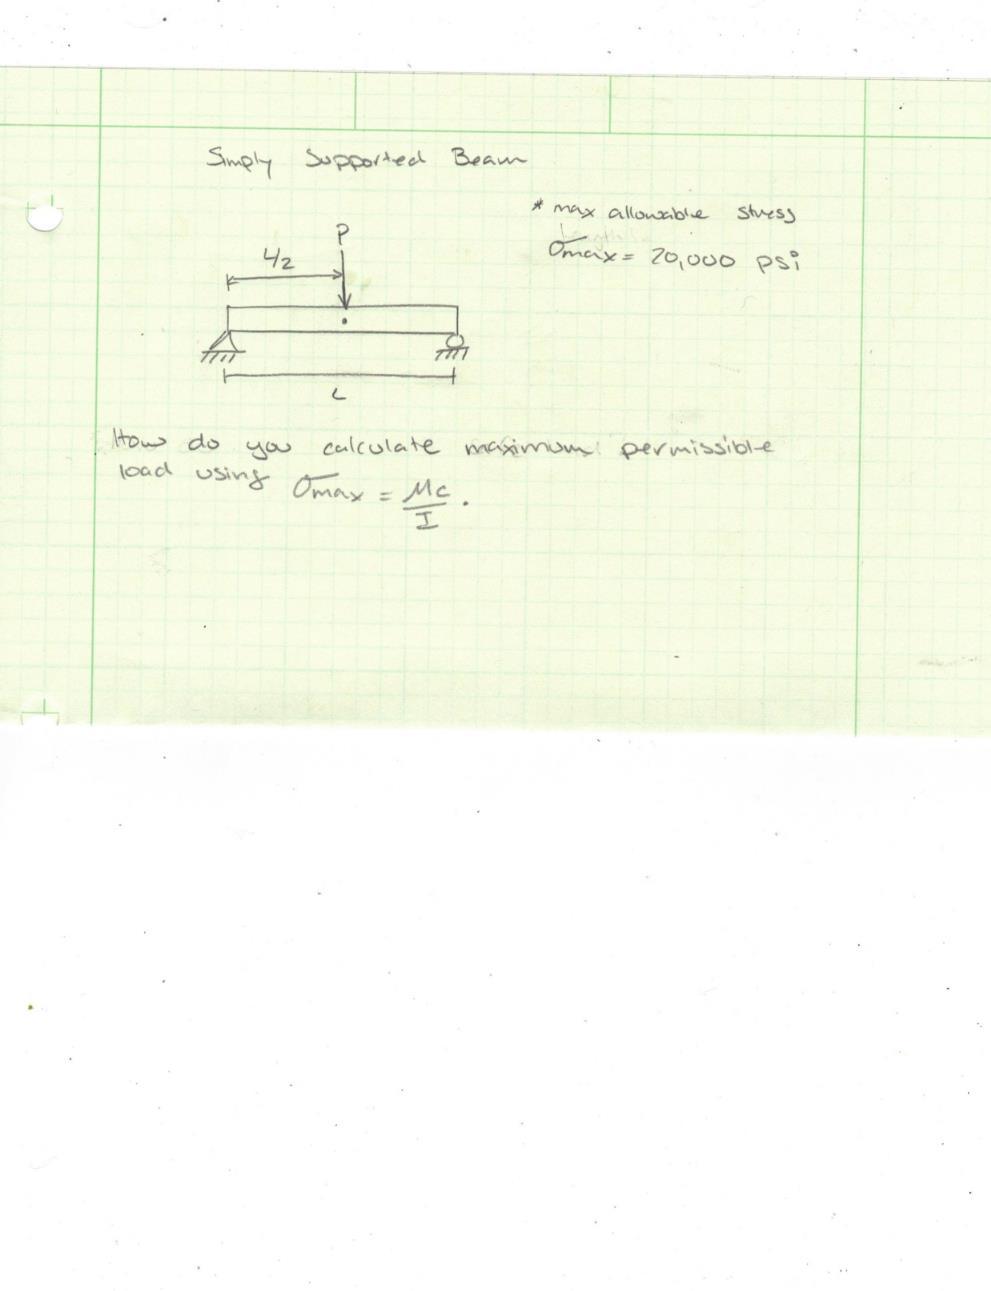 Simply Supported Beam
* max allowable stress
σmax = 20,000 psi
P
L/2
L
How do you calculate maximum permissible
load using σmax = Mc/I.